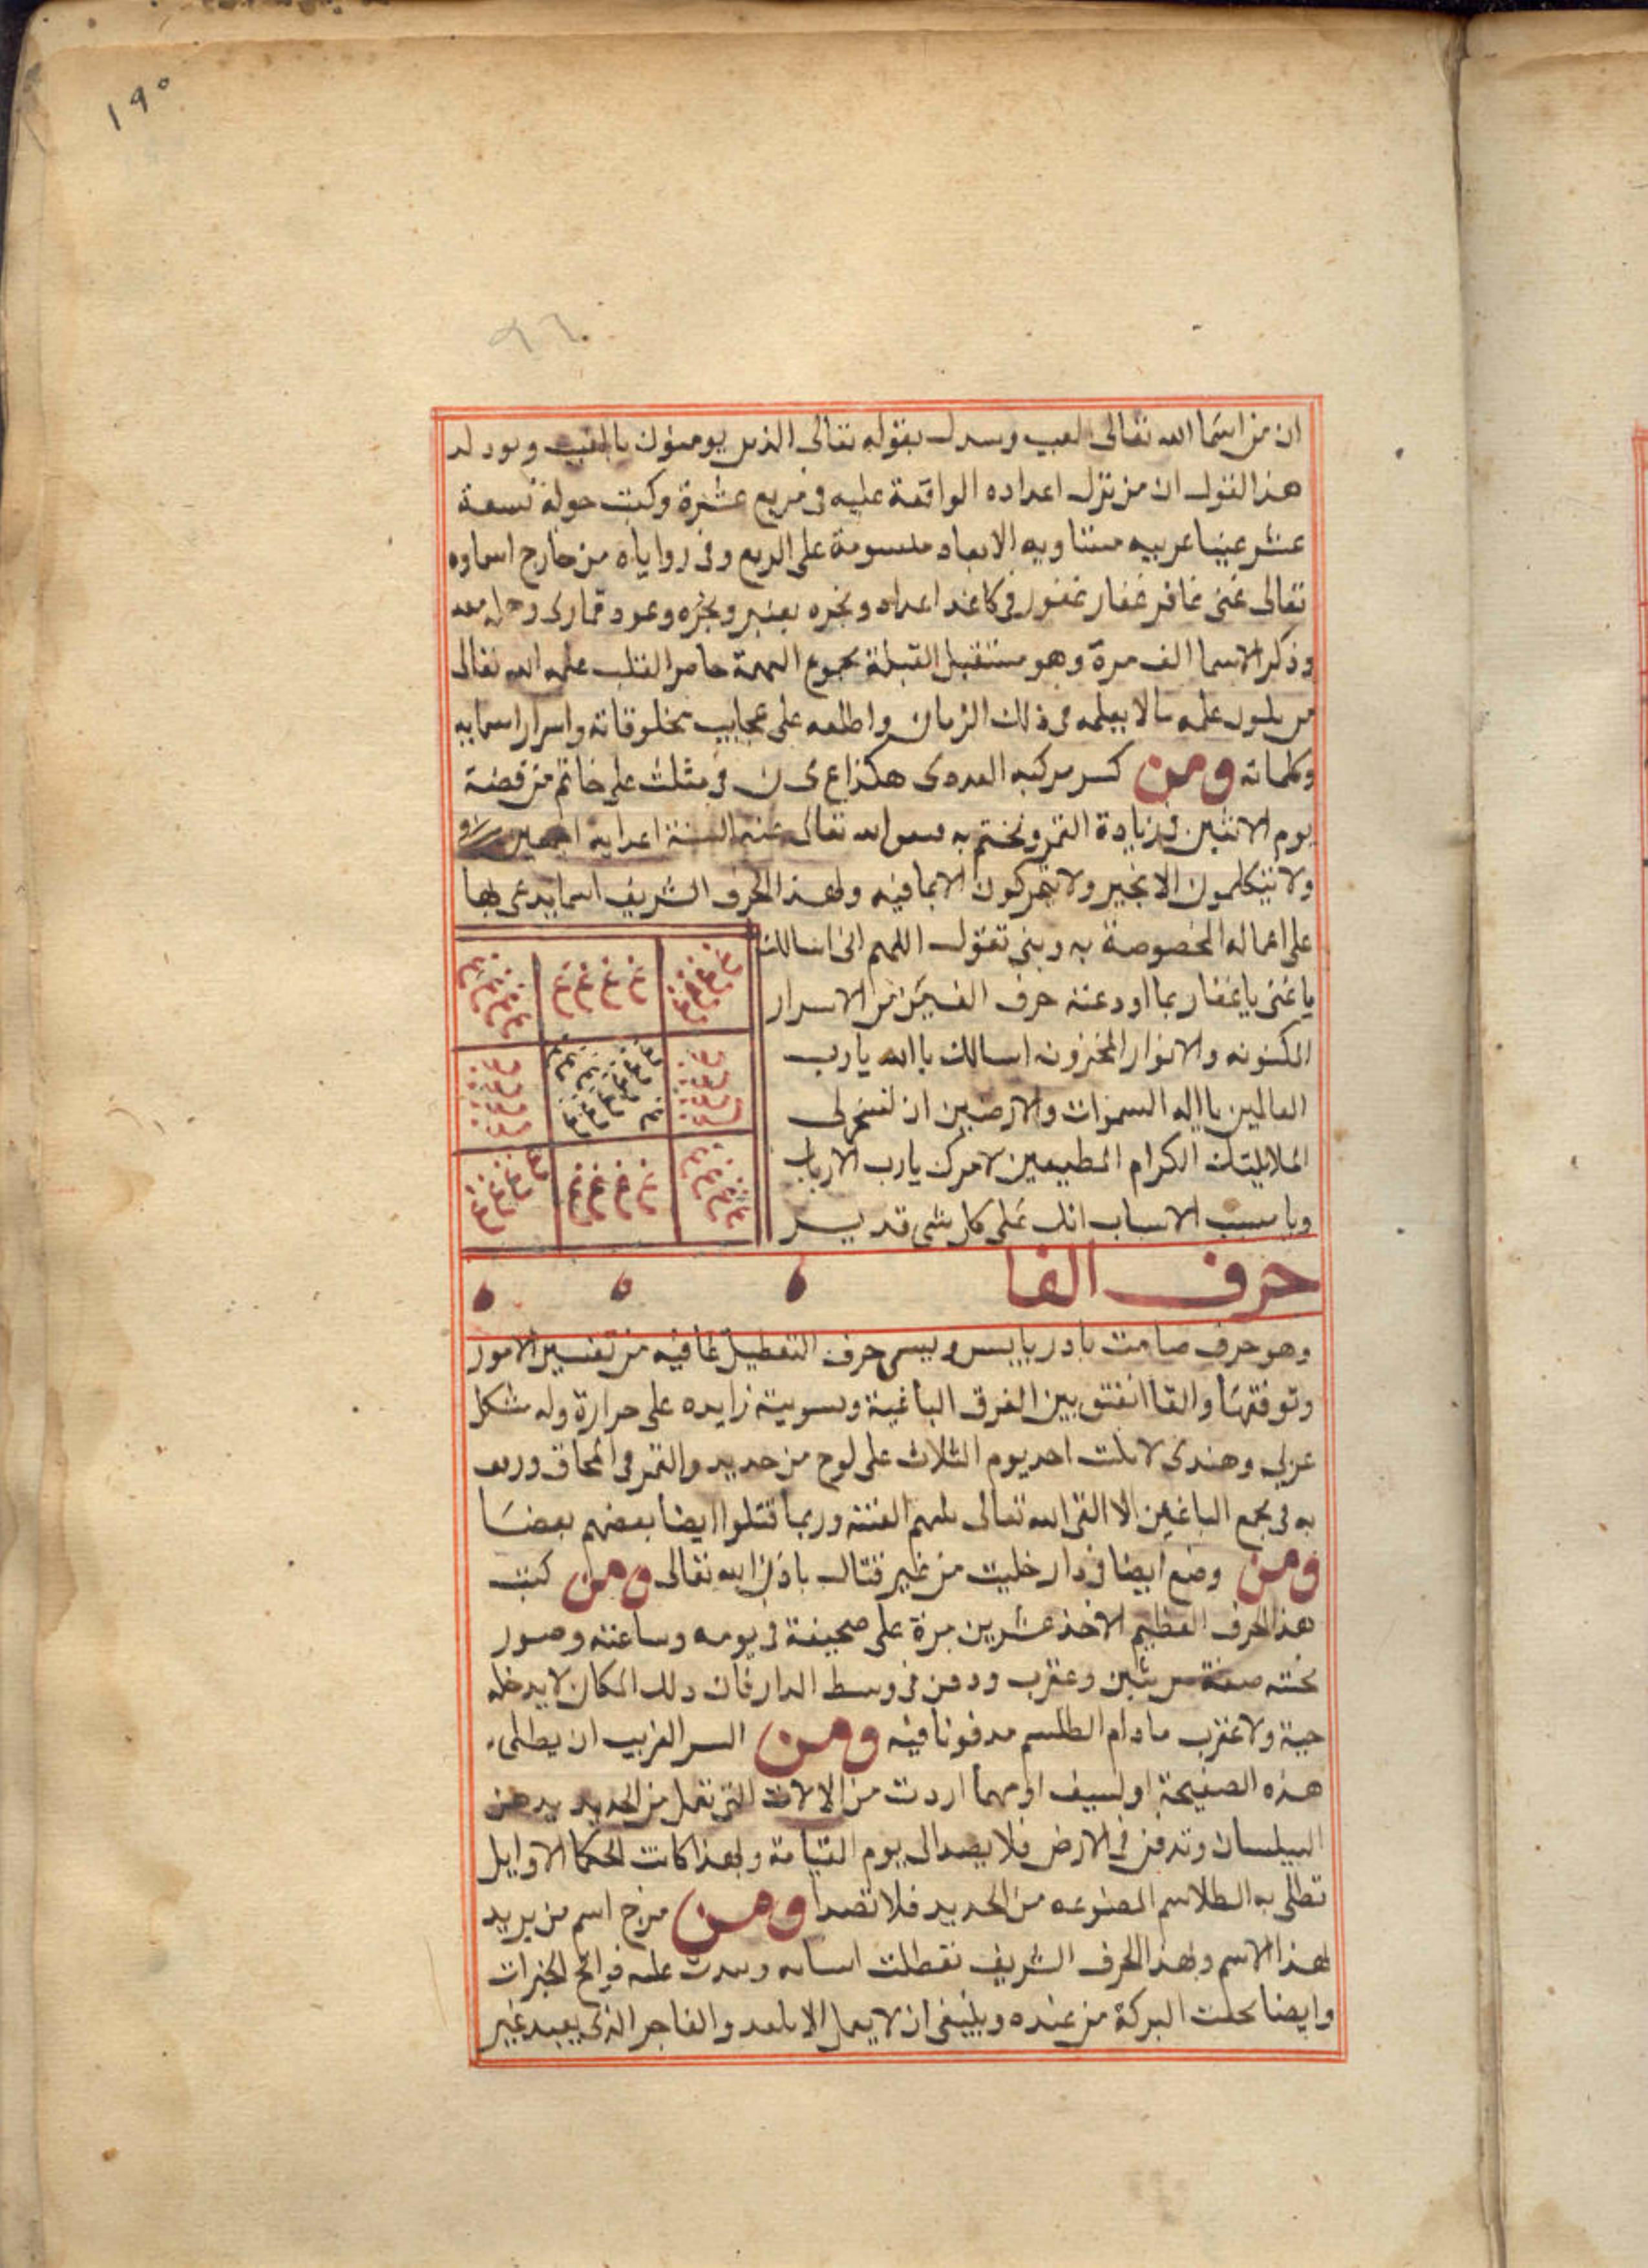 ١٩٥
ان من اسما الله تعالى الغيب ويستدل بقوله تعالى الذين يومنون بالغيب ويود له
هذا القول ان من نزل اعداده الواقعة عليه في مربع عشرة وكتب حوله تسعة
عشر غينا عربيه متساويه الابعاد مقسومة على الربع وفى زواياه من خارج اسماوه
تعالى غنى غافر غفار غفور فى كاغد اعداد وبخره بعنبر وبخره وعود قمارى وحمله معه
وذكر الاسما الف مرة وهو مستقبل القبلة بجموع الهمة حاضر القلب علمه الله تعالى
من علمه مالا يعلمه فى ذلك الزمان واطلعه على عجايب مخلوقاته واسرار اسمايه
وكلماته ومن كسر مركبه العددى هكذا ع ى ن فى مثلث على خاتم من فضة
يوم الاثنين فى زيادة القمر وتختم به الله تعالى عنه السنة اعدايه اجمعين
ولا يتكلمون الا بخير ولا يتحركون الا بما فيه ولهذا الحرف الشريف اسما يدعى بها
على اعماله المخصوصة به وبنى تقول اللهم انى اسالك
يا غنى يا غفار بما اودعته حرف الغين من الاسرار
المكنونه والانوار المخزونه اسالك يا الله يا رب
العالمين يا اله السموات والارضين ان تسخر لى
الملايكتك الكرام المطيعين لامرك يا رب الارباب
ويا مسبب الاسباب انك على كل شى قدير
حرف الفا
وهو حرف صامت بادر يابس ويسمى حرف التعطيل لما فيه من تعسير الامور
وتوقفها والقا الفتق بين الفرق الباغية ويبوسته زايده على حرارة وله شكل
عربى وهندى احد يوم الثلاث على لوح من حديد والقمر فى المحاق
به فى مجمع الباغين الا القى الله تعالى بينهم الفتنة وربما قتلوا ايضا بعضهم بعضا
ومن وضع ايضا فى دار خليت من غير قتال باذن الله تعالى ومن كتب
هذا الحرف العظيم الاخذ عشرين مرة على صحيفة فى يومه وساعته وصور
تحته صفة وعقرب ودفن فى وسط الدار فان ذلك المكان لا يدخله
حية ولا عقرب ما دام الطلسم مدفونا فيه ومن السر الغريب ان يطلى
هذه الصفيحة او لسيف او مهما اردت من الالات التى تعمل من الحديد بدهن
البيلسان وتدفن فى الارض فلا يصدا الى يوم القيامة وبهذا كانت الحكما الاوايل
تطلى به الطلاسم المصنوعه من الحديد فلا تصدا ومن مزج اسم من يريد
لهذا الاسم ولهذا الحرف الشريف تعطلت اسبابه وسدت عليه فواتح الخيرات
وايضا محلت البركة من عنده وينبغى ان لا يعمل الا والفاجر الذى يعبد غير